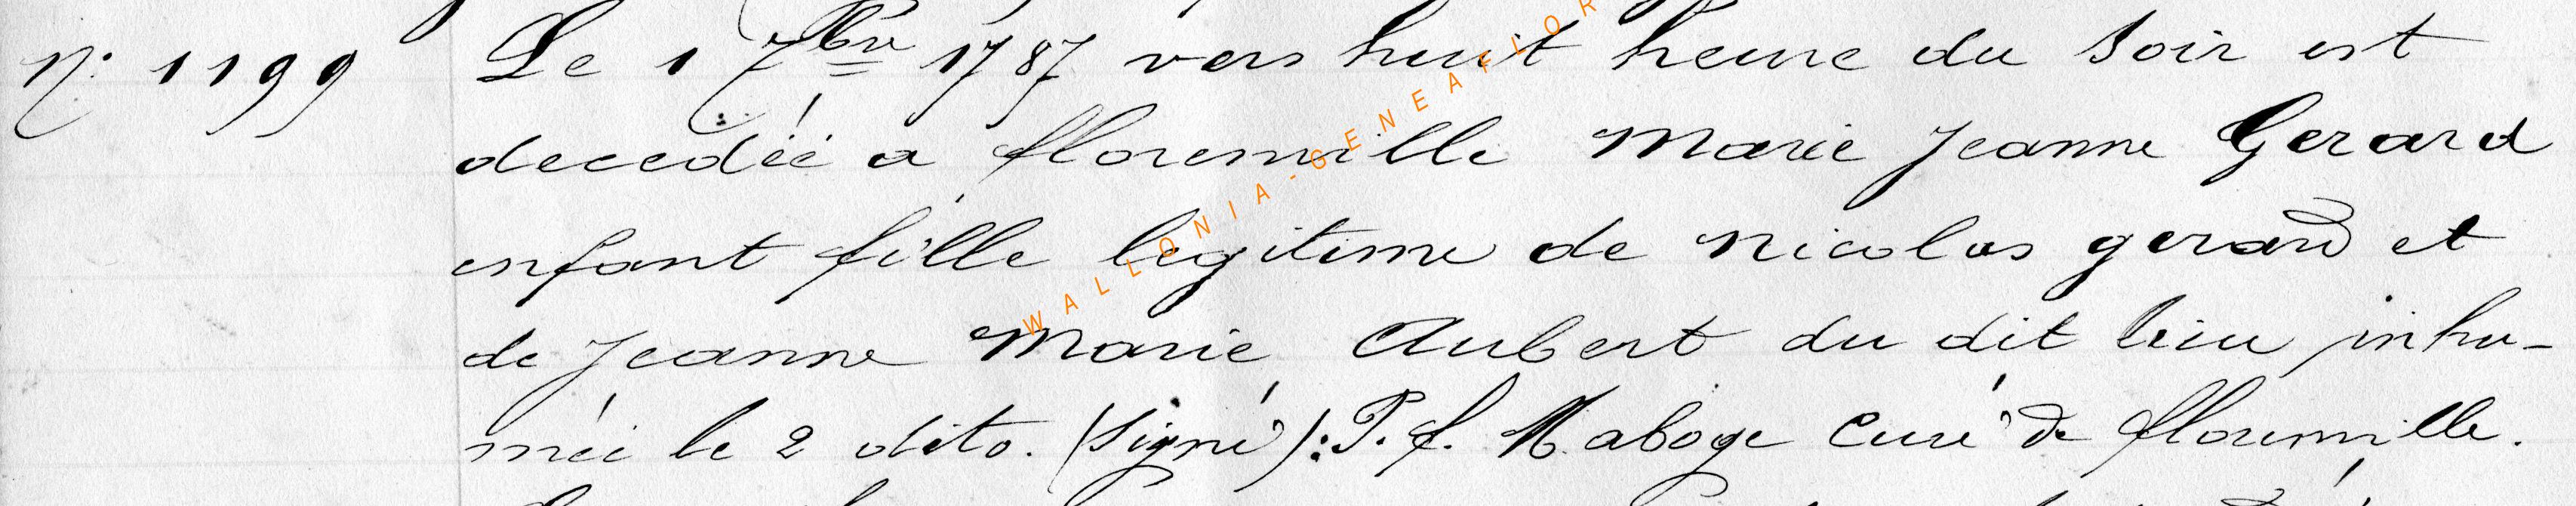 N° 1199 Le 1 7bre 1787 vers huit heure du soir est
decedéé a florenville Marie Jeanne Gerard
enfant fille legitime de nicolas gerard et
de Jeanne Marie Aubert du dit lieu inhu-
méé le 2 dito. (signé): P. f. Maboge Curé de florenville.
WALLONIA-GENEAFLOR